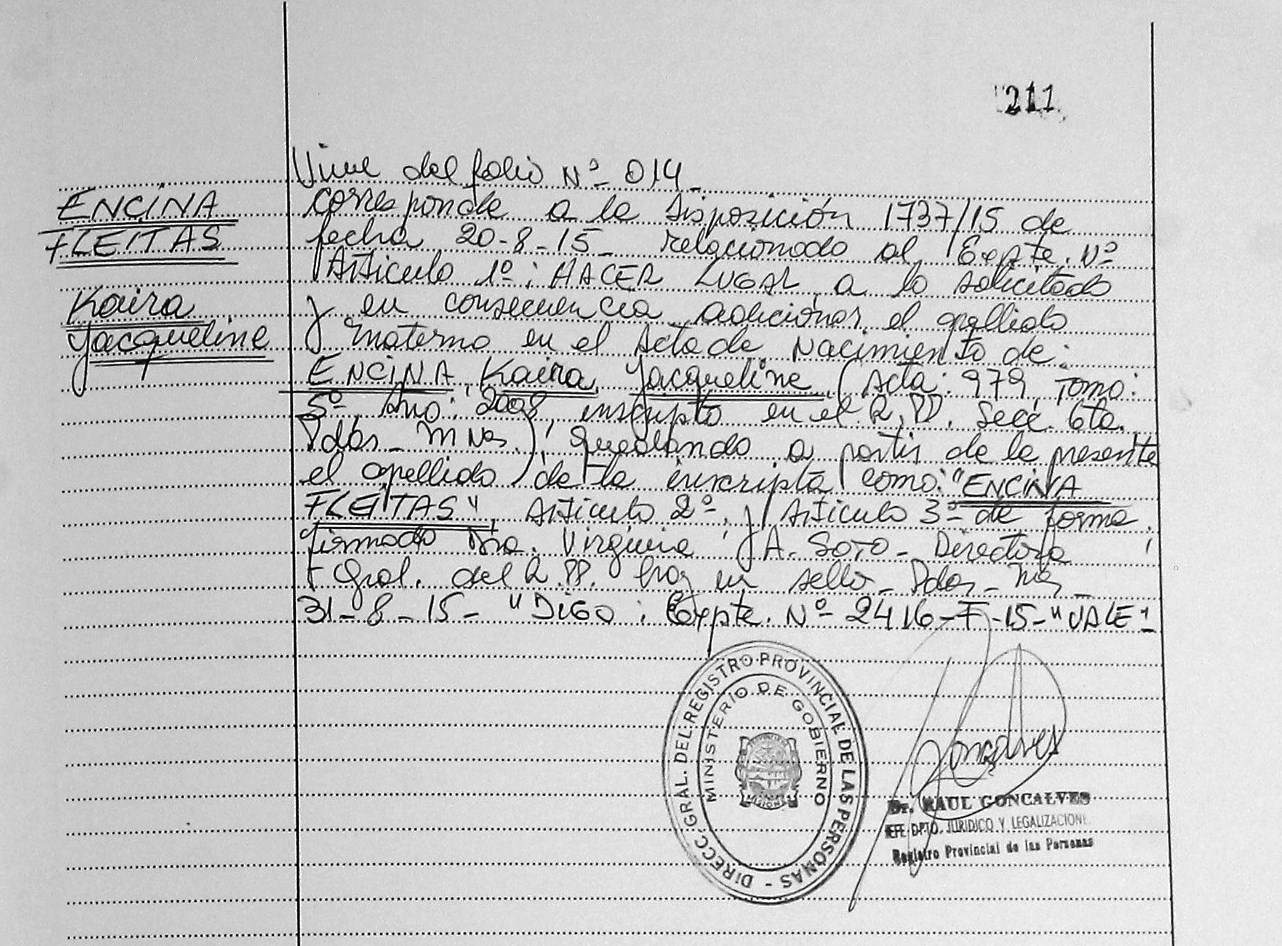 211
Viene del folio Nº 014_
ENCINA
FLEITAS
Kaira
Jacqueline
corresponde a la Disposición 1737/15 de
fecha 20-8-15_ relacionado al Expte. Nº
Artículo 1º: HACER LUGAR a lo solicitado
y en consecuencia adicionar el apellido
materno en el Acta de Nacimiento de:
ENCINA, Kaira Jacqueline (Acta: 979, Tomo:
5º Año: 2008 inscripto en el R.PP. Secc. 6ta.
Pdas_ Mnes.), quedando a partir de la presente
el apellido de la inscripta como: "ENCINA
FLEITAS", Artículo 2º y Artículo 3º de forma.
firmado Dra. Virginia A. SOTO_ Directora
Gral. del R.PP. hay un sello_ Pdas_ Mnes_
31-8-15- "DIGO: Expte. Nº-2416-F-15-"VALE"_
DIRECC. GRAL. DEL REGISTRO PROVINCIAL DE LAS PERSONAS -
MINISTERIO DE GOBIERNO
MISIONES
Goncalves
Dr. RAUL GONCALVES
JEFE DPTO. JURIDICO Y LEGALIZACIONE
Registro Provincial de las Personas